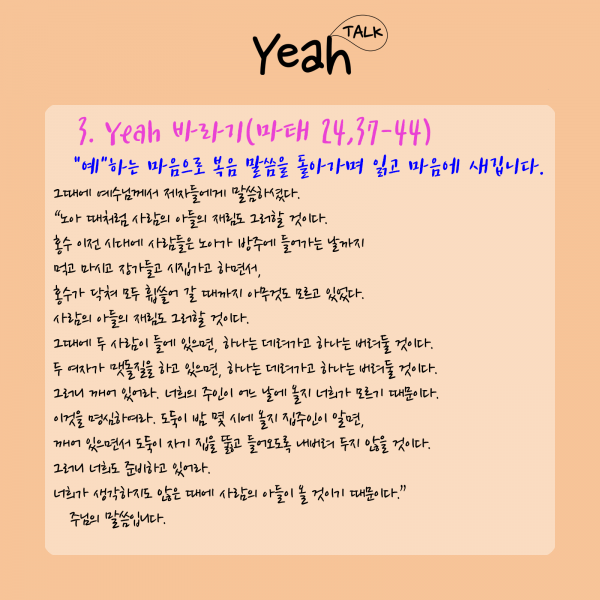 Yeah TALK
3. Yeah 바라기(마태 24,37-44)
"예"하는 마음으로 복음 말씀을 돌아가며 읽고 마음에 새깁니다.
그때에 예수님께서 제자들에게 말씀하셨다.
“노아 때처럼 사람의 아들의 재림도 그러할 것이다.
홍수 이전 시대에 사람들은 노아가 방주에 들어가는 날까지
먹고 마시고 장가들고 시집가고 하면서,
홍수가 닥쳐 모두 휩쓸어 갈 때까지 아무것도 모르고 있었다.
사람의 아들의 재림도 그러할 것이다.
그때에 두 사람이 들에 있으면, 하나는 데려가고 하나는 버려둘 것이다.
두 여자가 맷돌질을 하고 있으면, 하나는 데려가고 하나는 버려둘 것이다.
그러니 깨어 있어라. 너희의 주인이 어느 날에 올지 너희가 모르기 때문이다.
이것을 명심하여라. 도둑이 밤 몇 시에 올지 집주인이 알면,
깨어 있으면서 도둑이 자기 집을 뚫고 들어오도록 내버려 두지 않을 것이다.
그러니 너희도 준비하고 있어라.
너희가 생각하지도 않은 때에 사람의 아들이 올 것이기 때문이다.”
주님의 말씀입니다.